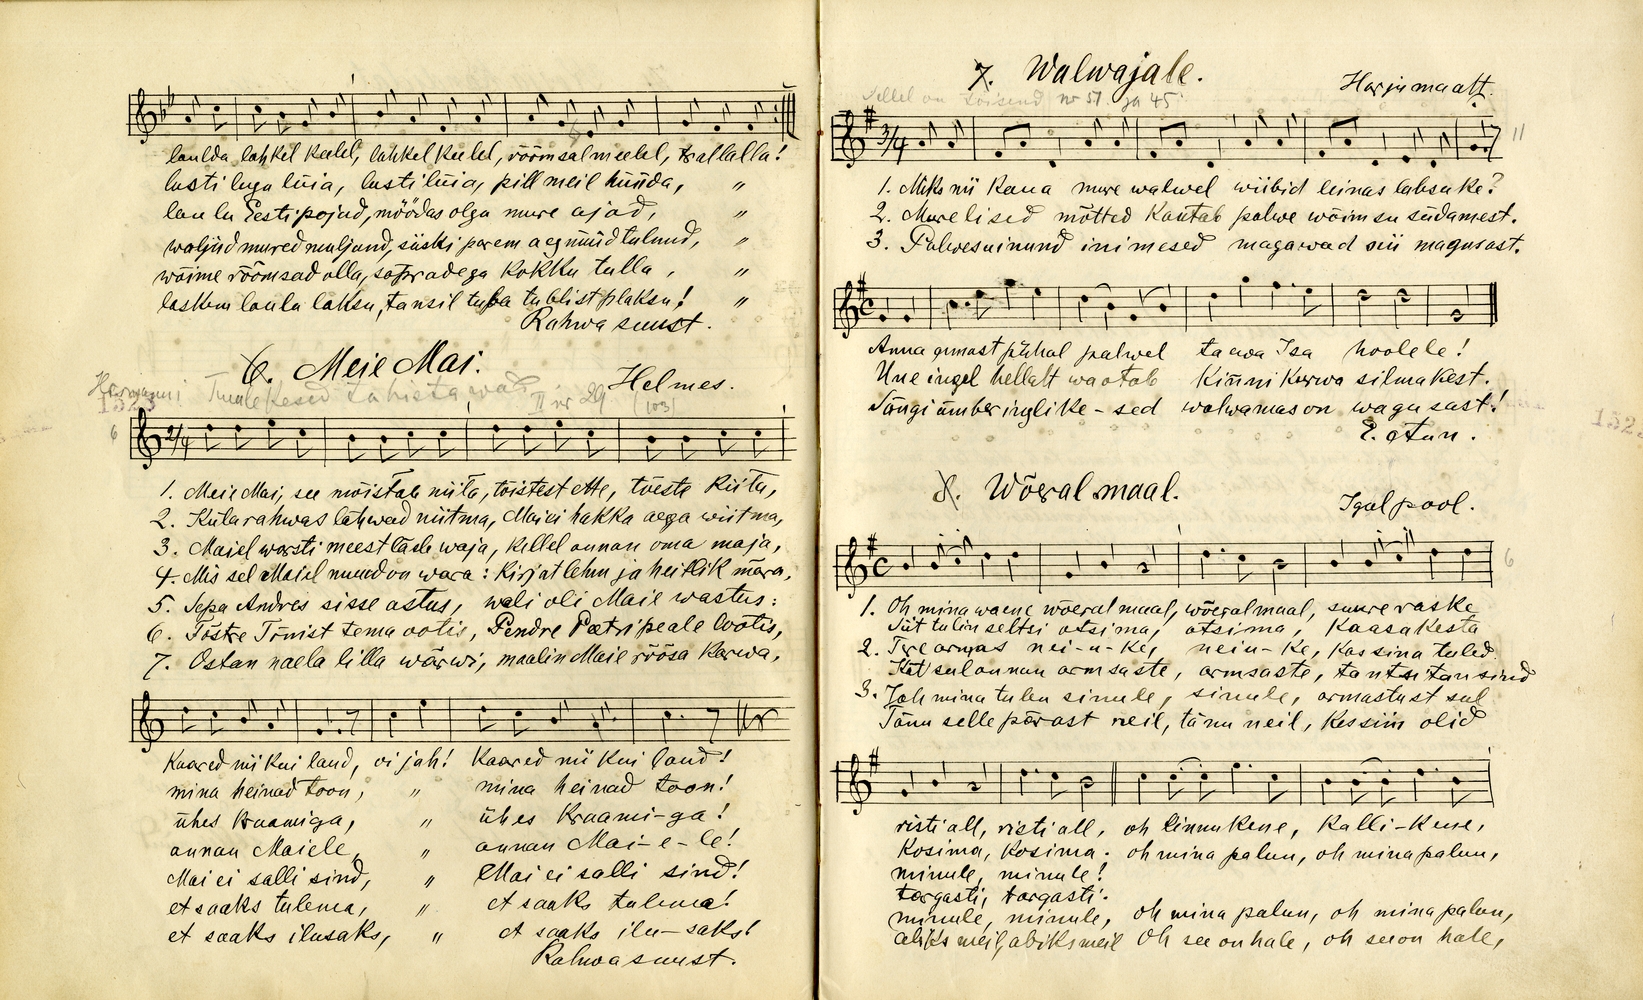 laulda lahkel keelel, lahkel keelel, rõõmsal meelel, trallalla!
lusti lugu lüia, lusti lüia, pill meil hüüda, "
laulu Eesti pojad, möödas olgu mure ajad, "
waljud mured muljund, siiski parem aeg nüüd tulnud, "
wõime rõõmsad olla, sõpradega kokku tulla, "
laskem laulu laksu, tansil tuba tublist plaksu! "
Rahwa suust.
6. Meie Mai. Helmes.
II nr 29 (103)
6
2/4
1. Meie Mai, see mõistab niita, tõistest ette, tõeste kiita,
2. Küla rahwas lähwad niitma, Mai ei hakka aega wiitma,
3. Maiel warsti meest läeb waja, kellel annan oma maja,
4. Mis sel Maiel nüüd on wara: kirjat lehm ja heitlik mära,
5. Sepa Andres sisse astus, wali oli Maie wastus:
6. Tõstre Tõnist tema ootis, Pendre Peetri peale lootis,
7. Ostan naela lilla wärwi, maalin Maie rõõsa karwa,
Kaared nii kui laud, oi jah! Kaared nii kui laud!
mina heinad toon, " mina heinad toon!
ühes kraamiga, " ühes kraami-ga!
annan Maiele, " annan Mai-e-le!
Mai ei salli sind, " Mai ei salli sind!
et saaks tulema, " et saaks tulema!
et saaks ilusaks, " et saaks ilu-saks!
Rahwa suust.
7. Walwajale.
Harjumaalt.
Sellel on teisend nr 51. ja 45
3/4
11
1. Miks nii kaua mure walwel wiibid leinas lapsuke?
2. Murelised mõtted kautab palwe wõim su südamest.
3. Palwes uinund inimesed magawad nii magusast.
Anna ennast pühal palwel taewa Isa hoolele!
Une ingel hellalt waotab kinni kurwa silmakest.
Sängi ümber inglike-sed walwamas on wagusast!
E. Aun.
8. Wõeral maal.
Igal pool.
C
6
1. Oh mina waene wõeral maal, wõeral maal, suure raske
Siit tulin seltsi otsima, otsima, kaasakesta
2. Tere armas nei-u-ke, neiu-ke, kas sina tuled
Kät sul annan armsaste, armsaste, tantsu tansind
3. Jah mina tulen sinule, sinule, armastust sul
Tänu selle pärast neil, tänu neil, kes siin olid
risti all, risti all, oh linnukene, kalli-kene,
kosima, kosima; oh mina palun, oh mina palun,
minule, minule!
targasti, targasti.
minule, minule, oh mina palun, oh mina palun,
abiks meil, abiks meil oh see on hale, oh see on hale,